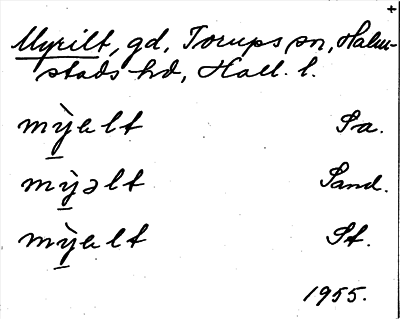 +
Myrilt, gd, Torups sn, Halm-
stads hd, Hall. l.
mỳalt Sa.
mỳəlt Sand.
mỳalt St.
1955.